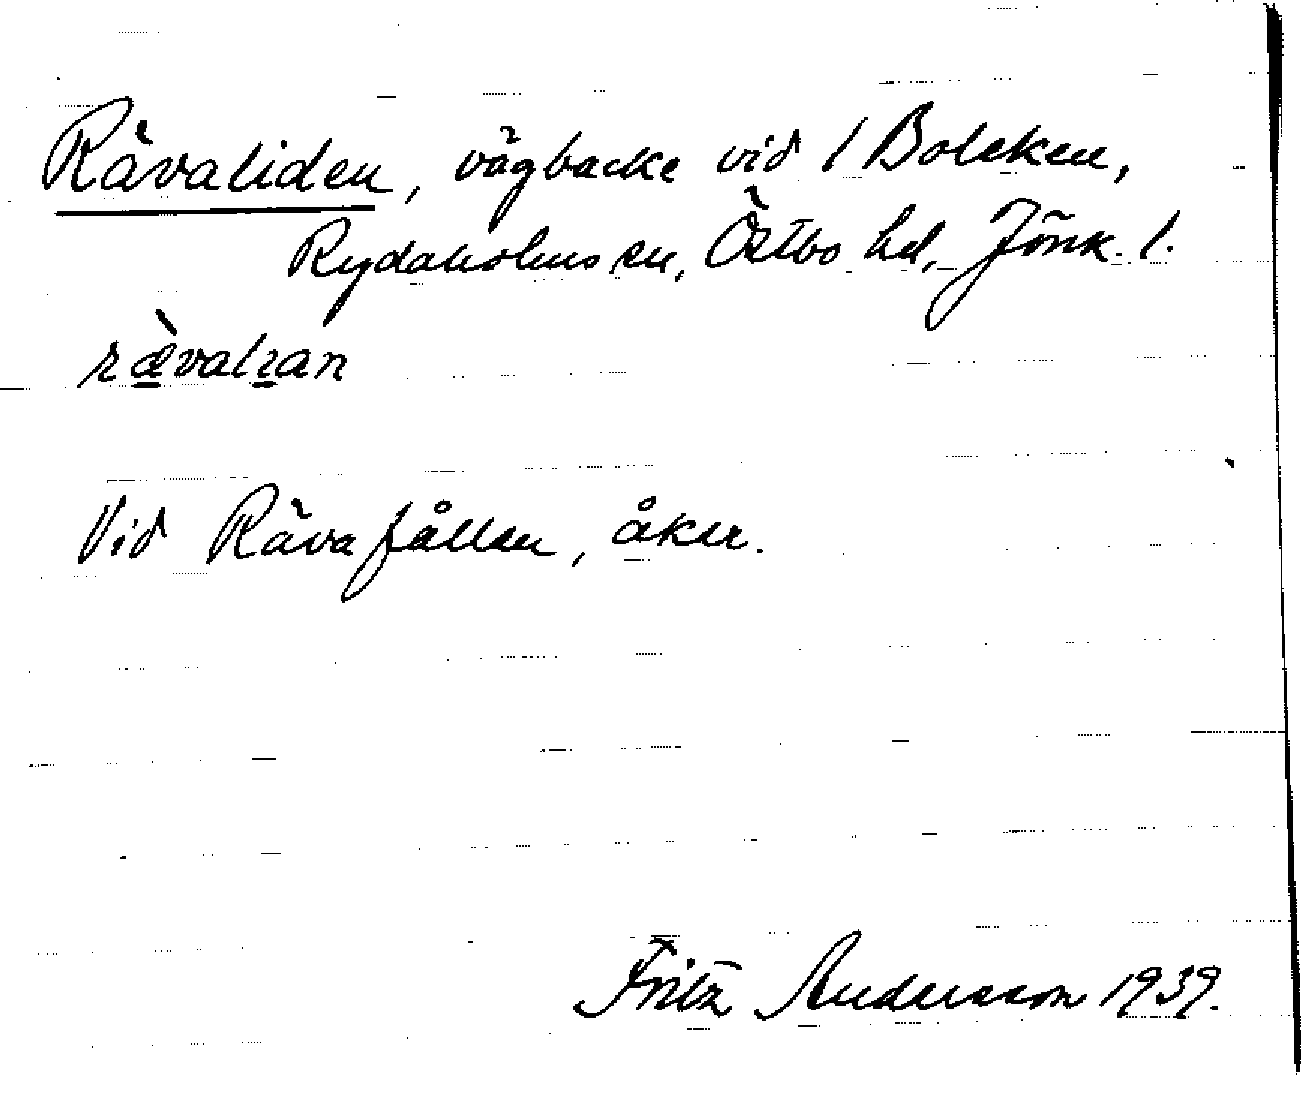 Rävaliden, vägbacke vid / Boleken,
Rydaholms sn, Östbo hd, Jönk. l.
rævalıan
Vid Rävafållen, åker.
Fritz Andersson 1939.